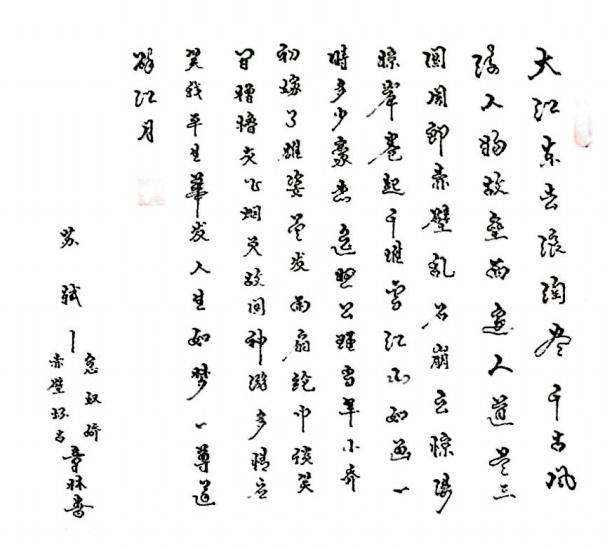 大江东去浪淘尽千古风
流人物故垒西边人道是三
国周郎赤壁乱石崩云惊涛
掠岸卷起千堆雪江山如画一
时多少豪杰遥想公瑾当年小乔
初嫁了雄姿英发羽扇纶巾谈笑
间樯橹灰飞烟灭故国神游多情应
笑我早生華发人生如梦一尊还
酹江月
苏轼—
念奴娇
赤壁怀古